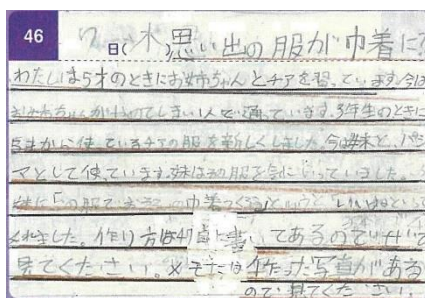 46 7日(木)思い出の服が巾着に?
わたしは5才のときにお姉ちゃんとチアを習っています。今は
お姉ちゃんがやめてしまい1人で通っています。3年生のときに
から使っているチアの服を新しくしました。今は妹と、パジ
マとして使っています。妹はその服を気にいっていました。
妹に「の服で の巾着つくる」というと「いいねといって
くれました。作り方は47 に書いてあるのでぜひ
見てください。 作った写真がある
ので見てください。